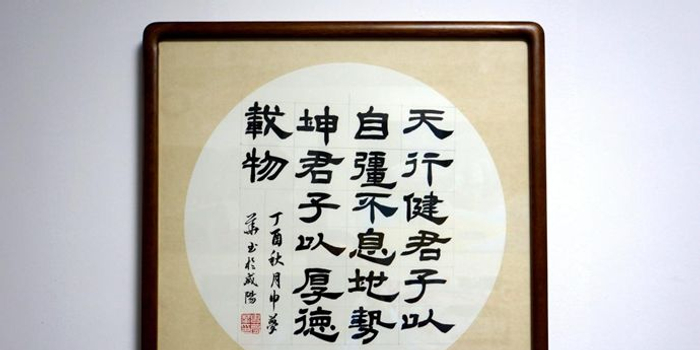 天行健君子以
自彊不息地勢
坤君子以厚德
載物
丁酉秋月申夢
華书於咸陽